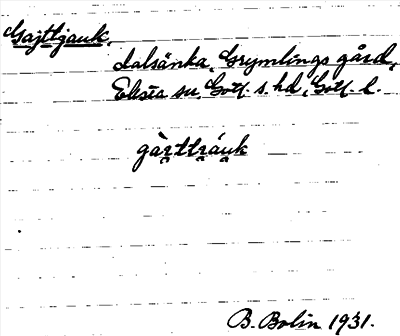 Gajtljauk.
dalsänka, Grymlings gård,
Eksta sn, Gotl. s. hd, Gotl. l.
B. Bolin 1931.